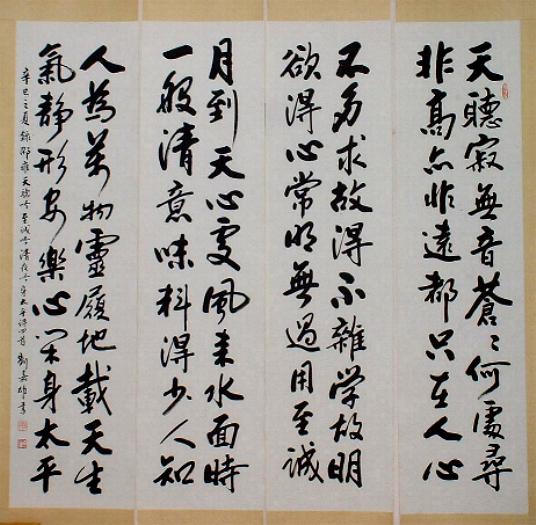 天聽寂無音蒼〻何處尋
非高亦非遠都只在人心
不多求故得不雜学故明
欲得心常明無過用至誠
月到天心處風来水面時
一般清意味料得少人知
人為萬物靈履地載天生
氣靜形安樂心閑身太平
辛巳之夏錄邵雍天聽吟至誠吟清夜吟太平詩四首 劉嘉書